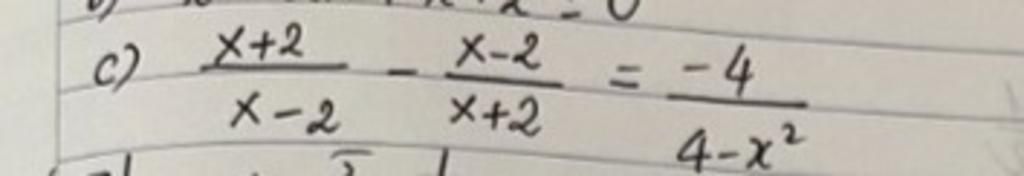 c) \frac{x+2}{x-2} - \frac{x-2}{x+2} = \frac{-4}{4-x^2}